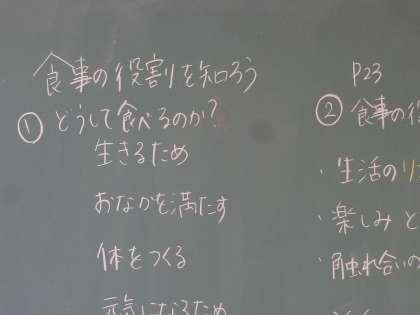 食事の役割を知ろう
① どうして食べるのか?
生きるため
おなかを満たす
体をつくる
元気になるため
P23
② 食事の役
・生活のリ
・楽しみと
・触れ合いの